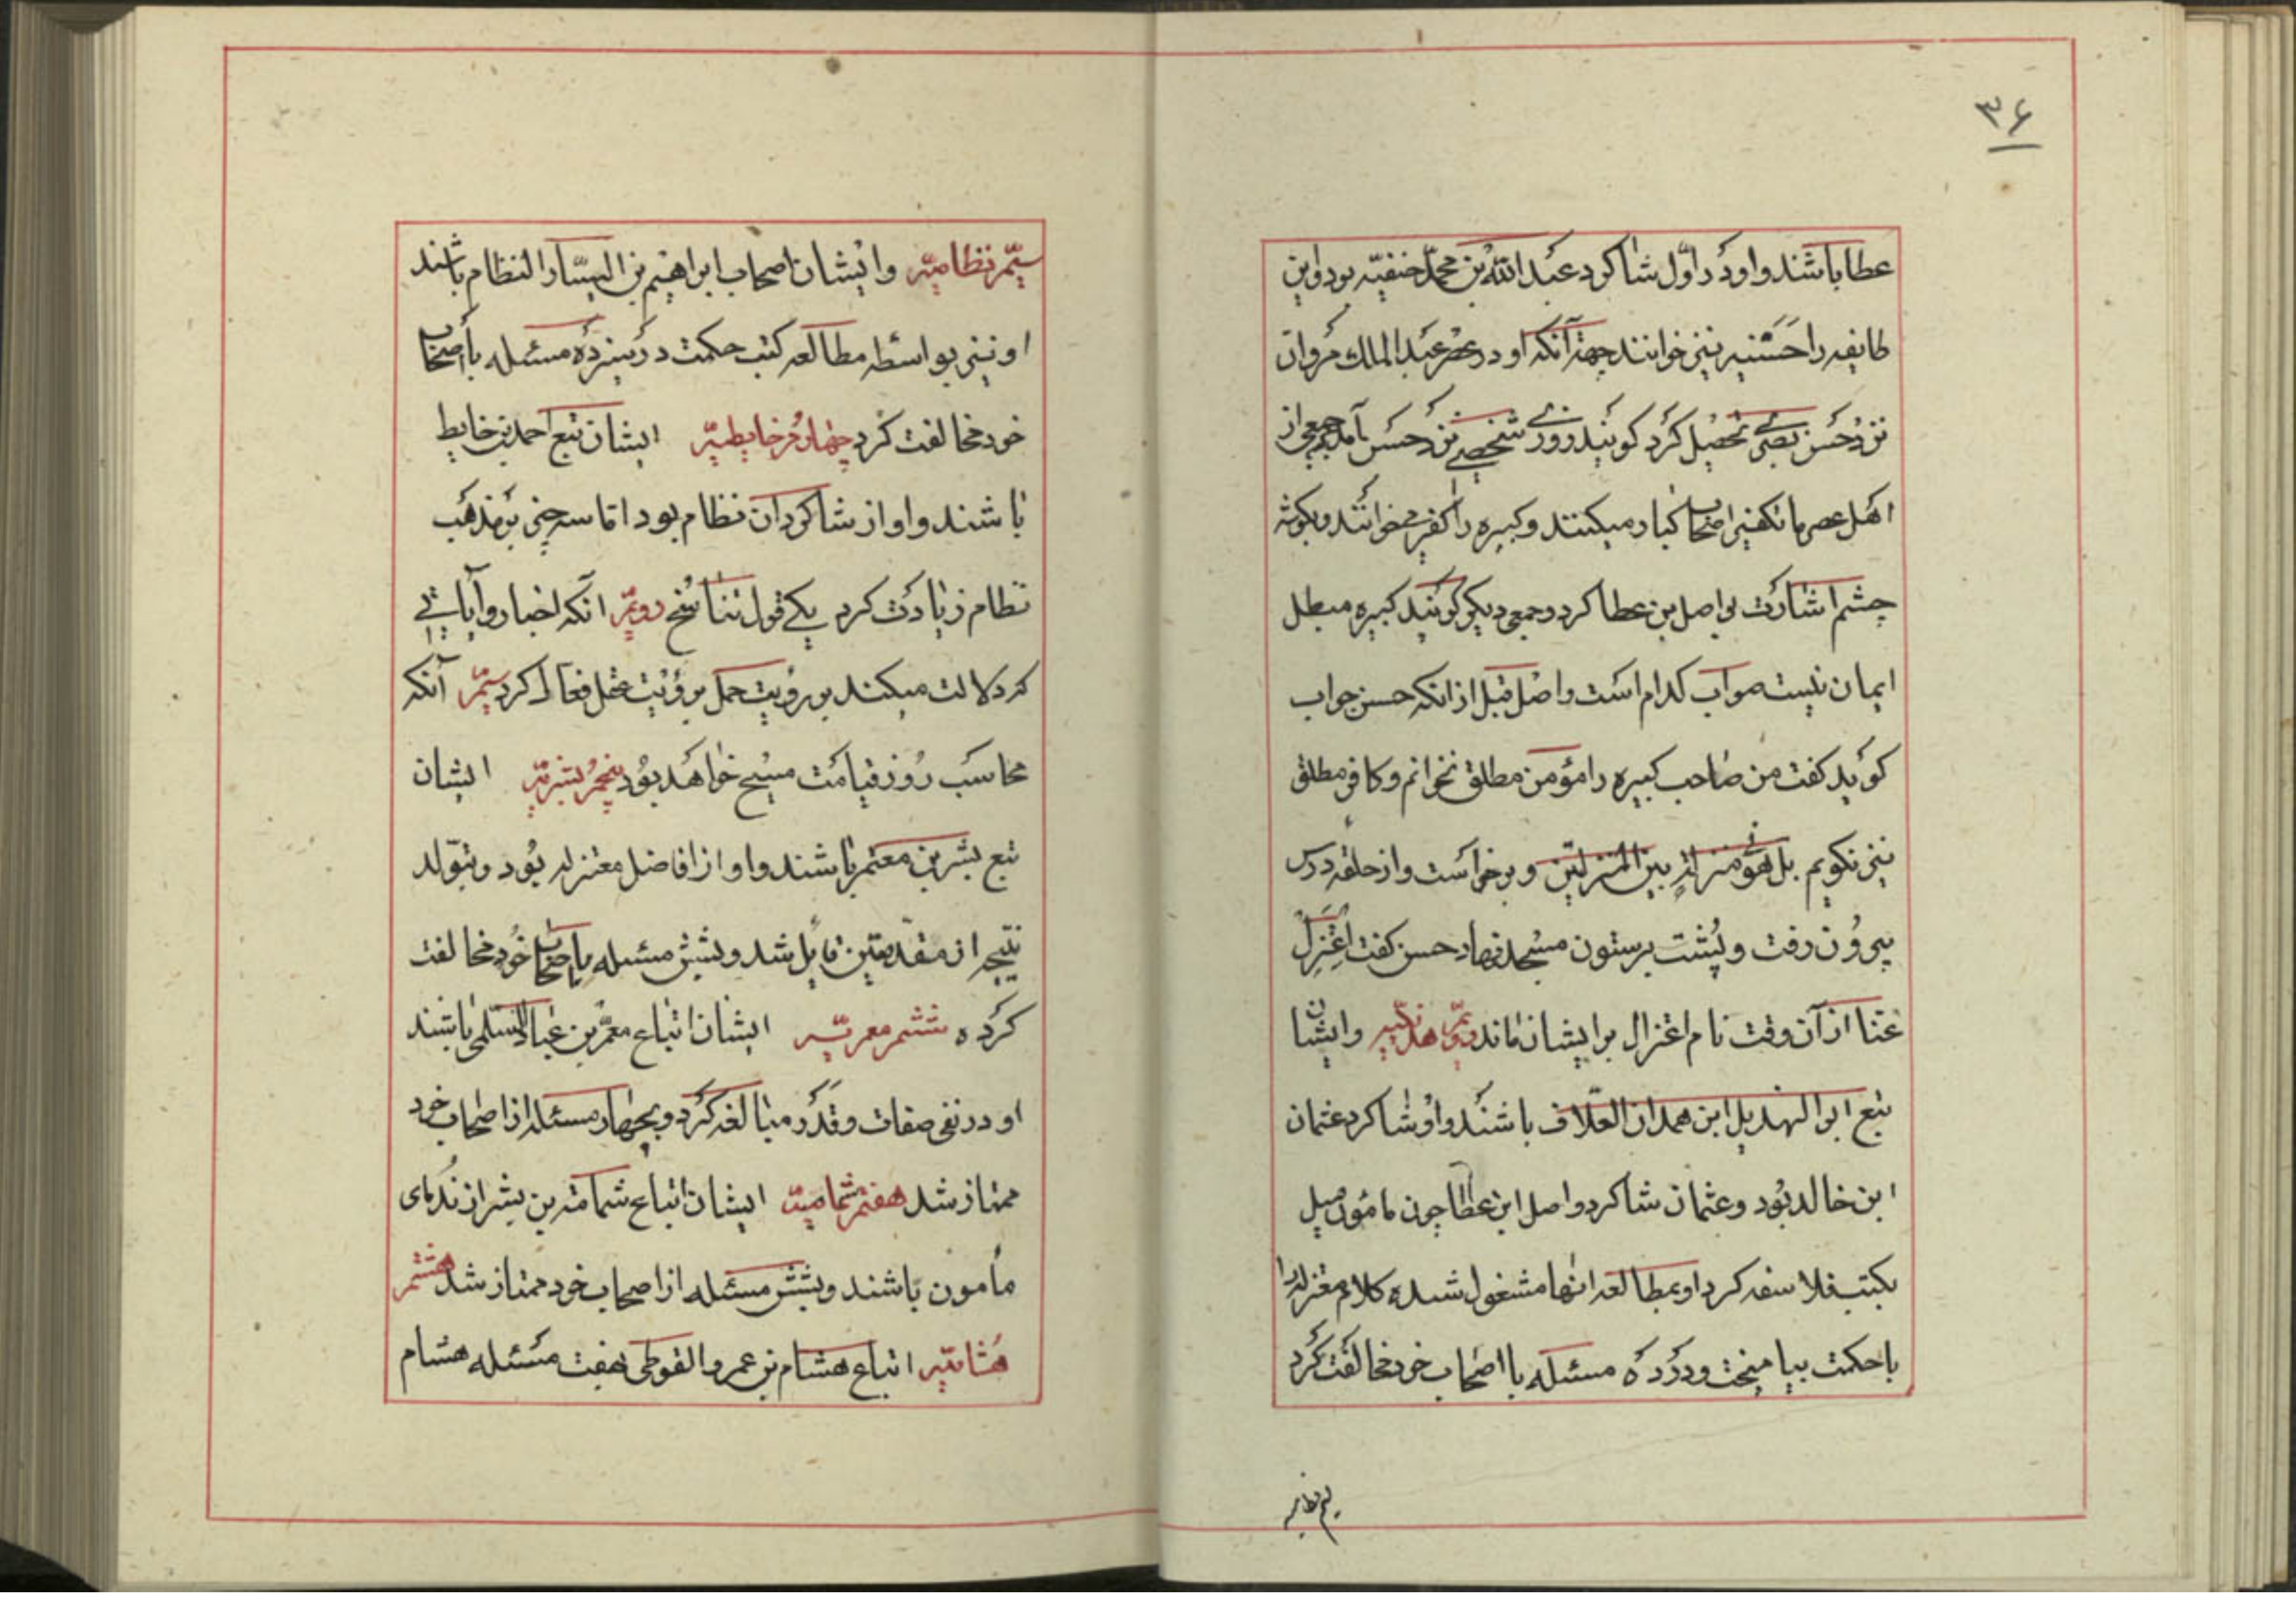 ۳۶
عطا باشند و او در اول شاکرد عبد الله بن محمد حنفیه بود و این
طایفه را حسنیه نیز خوانند جهة آنکه او در عصر عبد الملک مروان
نزد حسن بصری تحصیل کرد کویند روزی شخصی نزد حسن آمد جمعی از
اهل عصر ما تکفیر اصحاب کبار میکنند و کبیره را کفر میخوانند و بکوشه
چشم اشارت بواصل بن عطا کرد و جمعی دیکر کویند کبیره مبطل
ایمان نیست صواب کدام است واصل قبل از انکه حسن جواب
کوید کفت من صاحب کبیره را مؤمن مطلق نخوانم و کافر مطلق
نیز نکویم بل هو فی منزلة بین المنزلتین و برخواست و از حلقه درس
بیرون رفت و پشت برستون مسجد نهاد حسن کفت اعتزل
عنا از آن وقت نام اعتزال بر ایشان ماند دویم هذلیه و ایشان
تبع ابو الهذیل ابن همدان العلاف باشند و او شاکرد عثمان
ابن خالد بود و عثمان شاکرد واصل ابن عطا چون مامون میل
بکتب فلاسفه کرد او بمطالعه انها مشغول شده کلام معتزله را
با حکمت بیامیخت و در ده مسئله با اصحاب خود مخالفت کرد
سیم نظامیه
سیم نظامیه و ایشان اصحاب ابراهیم بن السیار النظام باشند
او نیز بواسطه مطالعه کتب حکمت در سیزده مسئله با اصحاب
خود مخالفت کرد چهارم خایطیه ایشان تبع احمد بن خایط
باشند و او از شاکردان نظام بود اما سه چیز بر مذهب
نظام زیادت کرد یکی قول تناسخ دویم انکه اخبار و آیاتی
که دلالت میکند بر رویت حمل بر رؤیت عقل فعال کرد سیم آنکه
محاسب روز قیامت مسیح خواهد بود پنجم بشریه ایشان
تبع بشر بن معتمر باشند و او از افاضل معتزله بود و بتولد
نتیجه از مقدمتین قایل شد و بشش مسئله با اصحاب خود مخالفت
کرده ششم معمریه ایشان اتباع معمر بن عباد السلمی باشند
او در نفی صفات و قدر مبالغه کرد و بچهار مسئله از اصحاب خود
ممتاز شد هفتم ثمامیه ایشان اتباع ثمامة بن بشر از ندمای
مأمون باشند و بشش مسئله از اصحاب خود ممتاز شد هشتم
هشامیه اتباع هشام بن عمرو الفوطی بهفت مسئله هشام